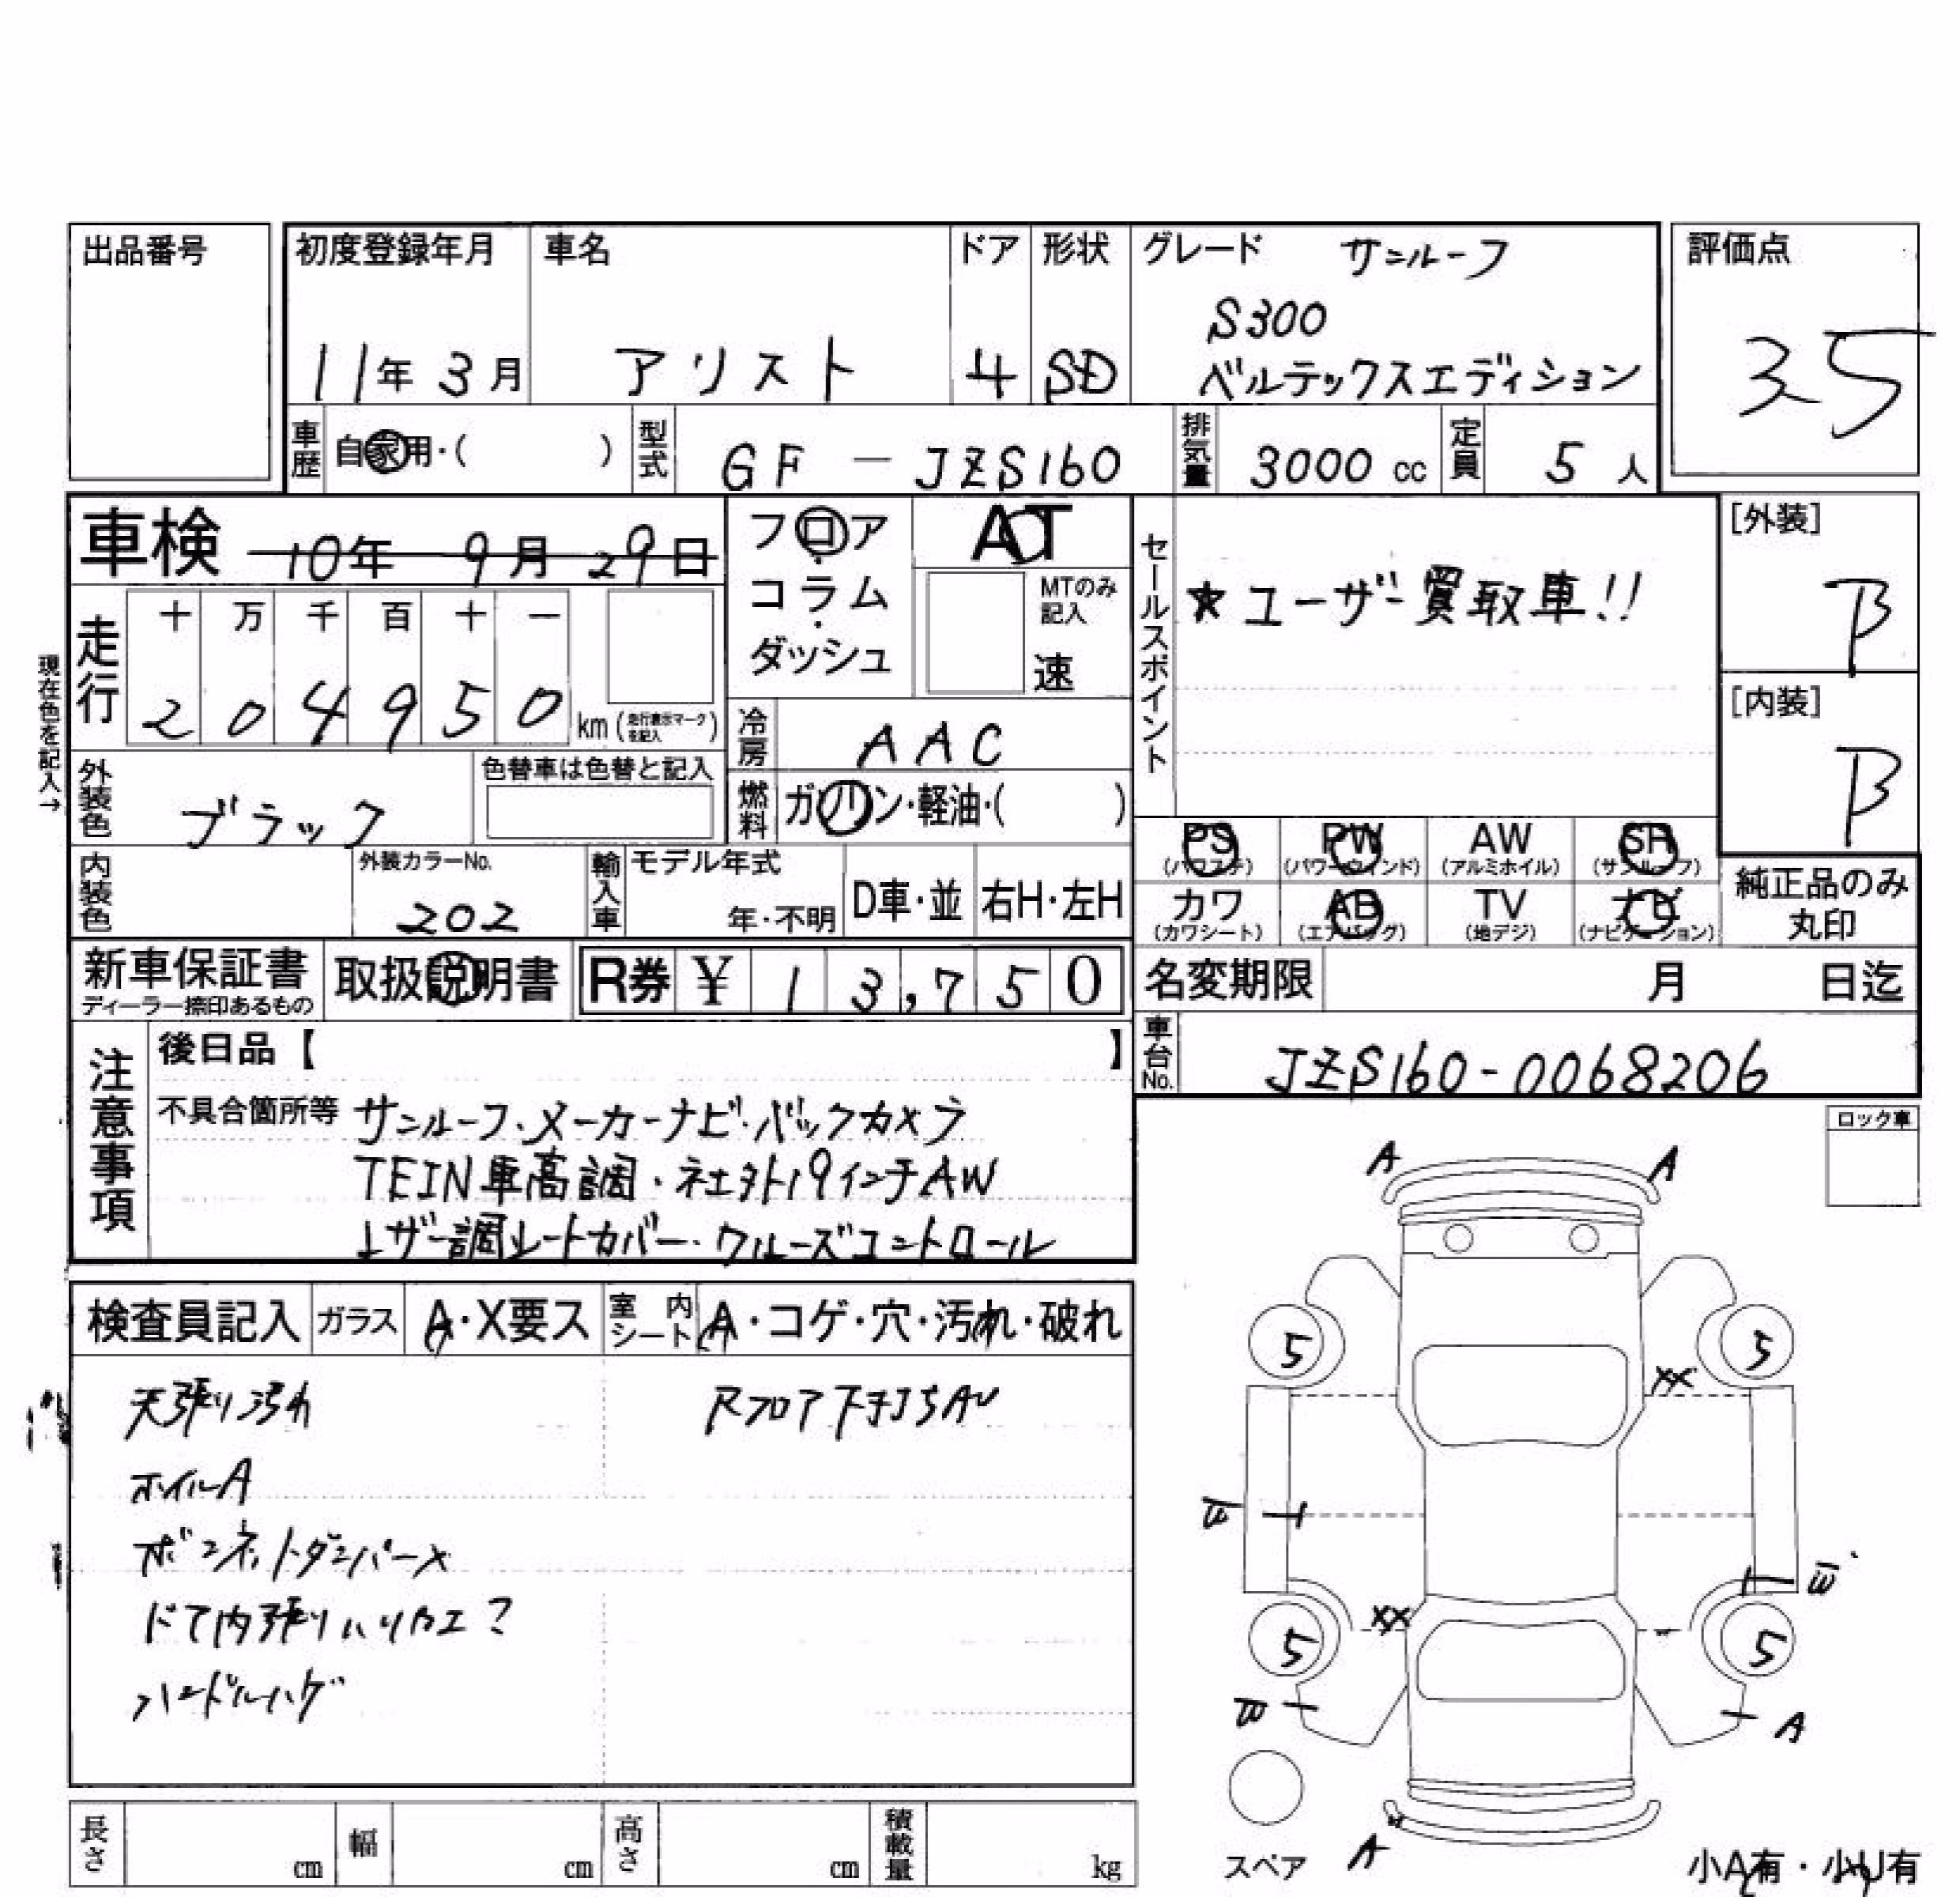 出品番号
初度登録年月 車名 ドア 形状 グレード サンルーフ
評価点
S300
11年 3月 アリスト 4 SD ベルテックスエディション
35
車歴 自家用・( ) 型式 GF - JZS160 排気量 3000 cc 定員 5 人
車検 10年 9月 29日
フロア・コラム・ダッシュ
AT
MTのみ記入
速
セールスポイント
★ユーザー買取車!!
[外装]
B
[内装]
B
現在色を記入→
走行 十 万 千 百 十 一
2 0 4 9 5 0 km (走行表示マークを記入)
冷房 AAC
外装色 ブラック
色替車は色替と記入
燃料 ガソリン・軽油・( )
PS (パワステ) PW (パワーウィンド) AW (アルミホイル) SR (サンルーフ)
カワ (カワシート) AB (エアバッグ) TV (地デジ) ナビ (ナビゲーション)
純正品のみ丸印
内装色 外装カラーNo. 202
輸入車 モデル年式 年・不明 D車・並 右H・左H
新車保証書 ディーラー捺印あるもの
取扱説明書 R券 ¥ 1 3,7 5 0
名変期限 月 日迄
車台No. JZS160-0068206
注意事項
後日品【 】
不具合箇所等 サンルーフ・メーカーナビ・バックカメラ
TEIN車高調・社外19インチAW
レザー調シートカバー・クルーズコントロール
ロック車
検査員記入 ガラス A・X要ス 室内シート A・コゲ・穴・汚れ・破れ
天張り汚れ
Rフロア下まわりAU
ホイルA
ボンネットダンパー×
ドア内張りハリカエ?
ハンドルハゲ
A A
5 5
XX
XX
5 5
A
A
スペア
小A有・小U有
長さ cm 幅 cm 高さ cm 積載量 kg